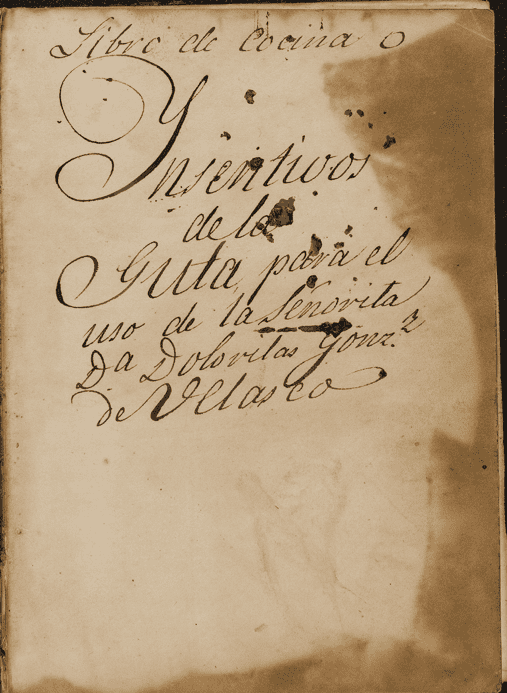 Libro de Cocina o
Ynsentivos
de la
Guta, para el
uso de la Señorita
Da Doloritas Gonz.z
de Velasco